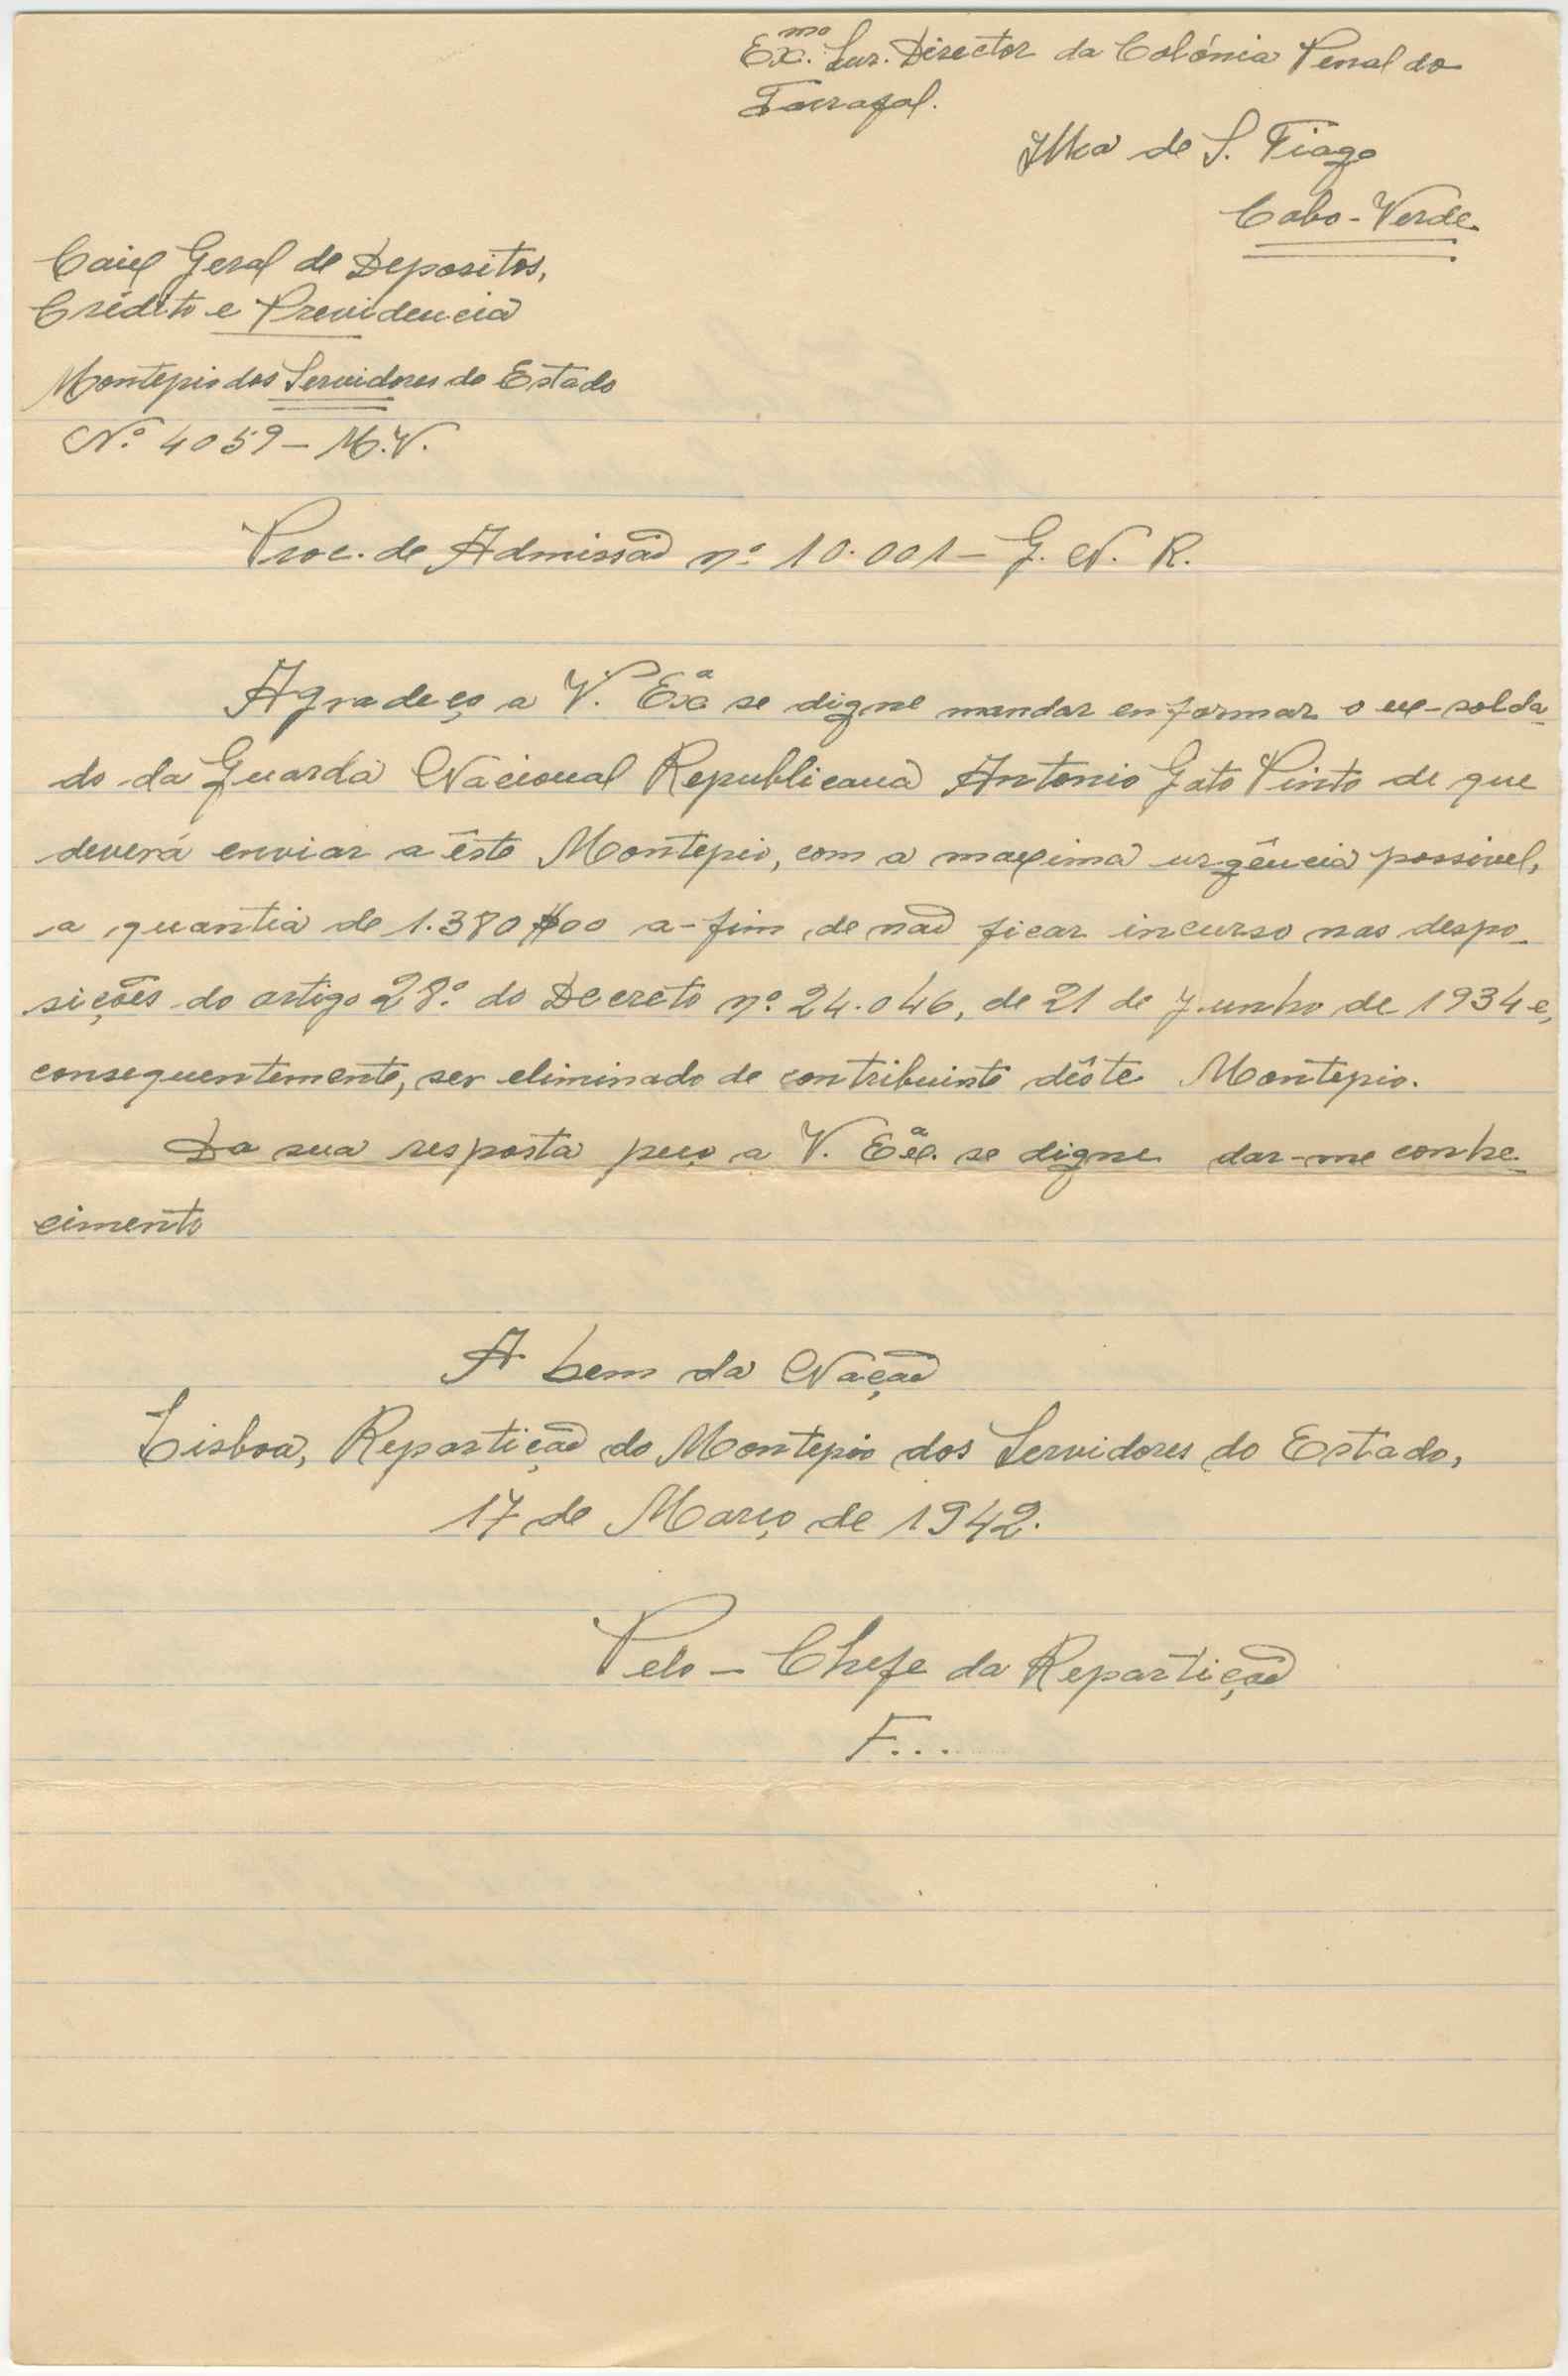 Exmo. Snr. Director da Colónia Penal do
Tarrafal.
Ilha de S. Tiago
Cabo-Verde
Caixa Geral de Depositos,
Crédito e Previdencia
Montepio dos Servidores do Estado
N.º 4059 - M.V.
Proc. de Admissão nº 10.001 - G. N. R.
Agradeço a V. Exª se digne mandar enformar o ex-solda-
do da Guarda Nacional Republicana Antonio Gato Pinto de que
deverá enviar a êste Montepio, com a maxima urgência possivel,
a quantia de 1.380$00 a-fim de não ficar incurso nas despo-
sições do artigo 28º. do Decreto nº 24.046, de 21 de Junho de 1934 e,
consequentemente, ser eliminado de contribuinte dêste Montepio.
Da sua resposta peço a V. Exª. se digne dar-me conhe-
cimento
A bem da Nação
Lisboa, Repartição do Montepio dos Servidores do Estado,
17 de Março de 1942.
Pelo - Chefe da Repartição
F...